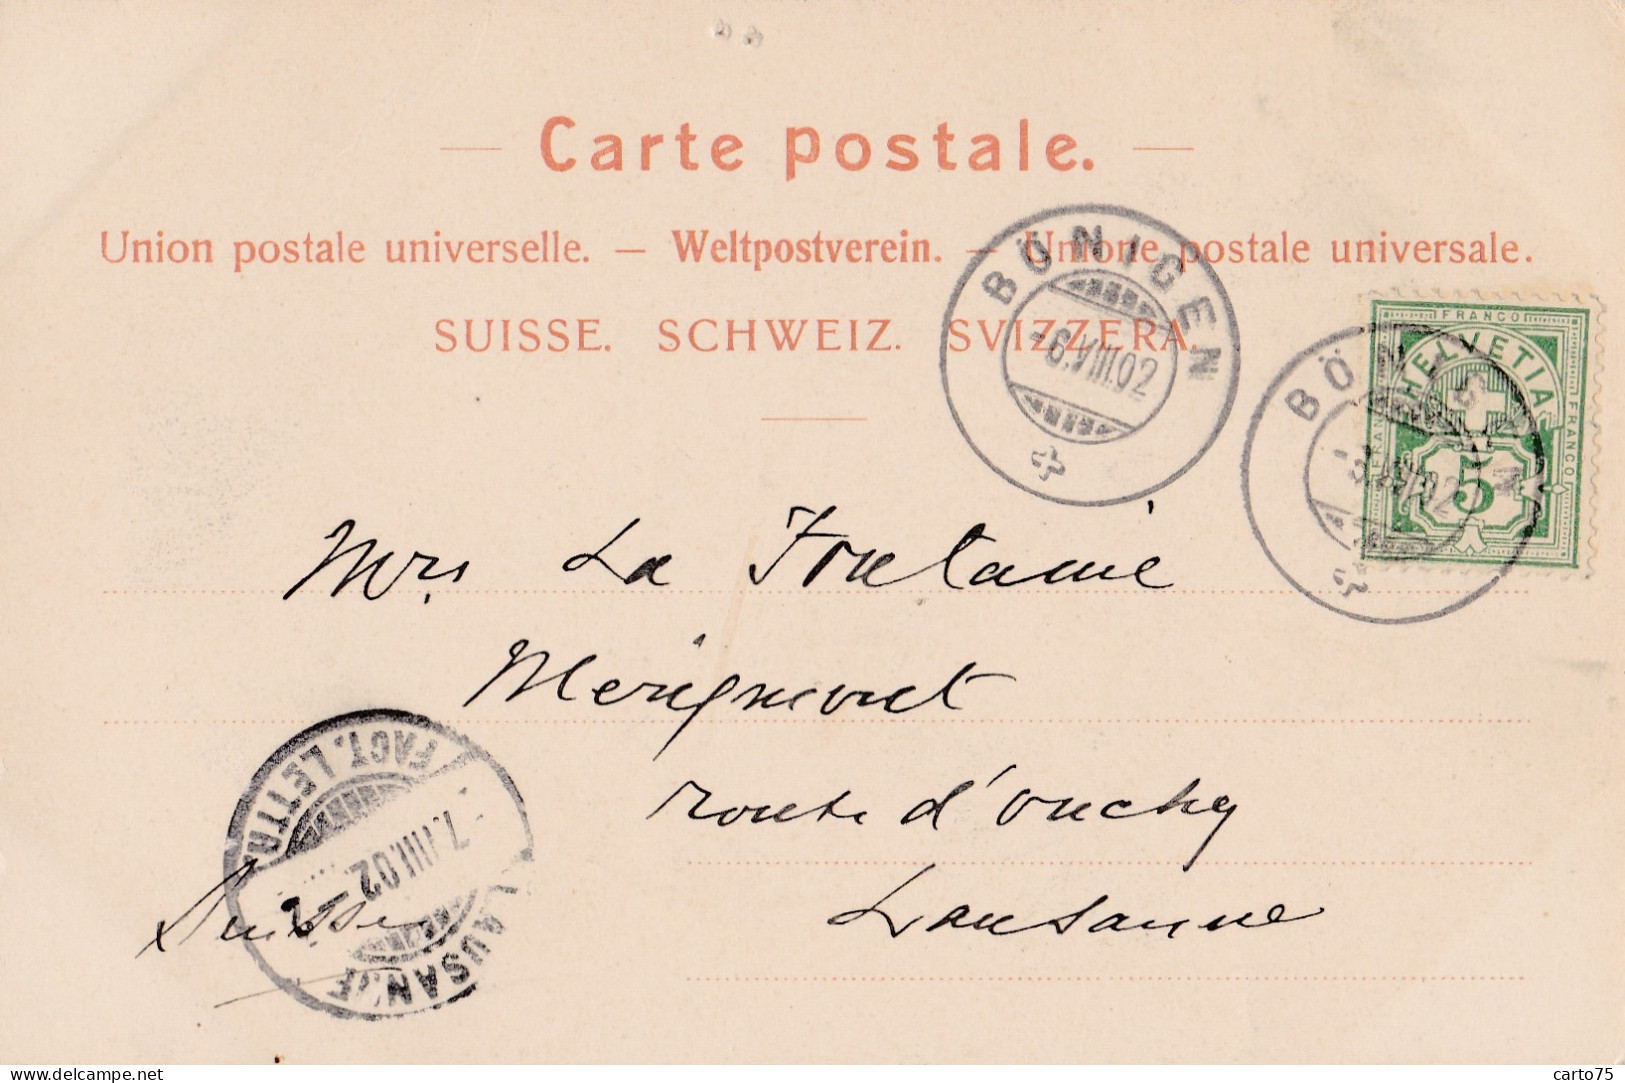 Carte postale.
Union postale universelle. — Weltpostverein. — Unione postale universale.
SUISSE. SCHWEIZ. SVIZZERA.
BÖNIGEN
-6.VIII.02
FRANCO
HELVETIA
FRANCO
FRANCO
5
BÖNIGEN
VIII.02
Mrs La Fontaine
route d'ouchy
Lausanne
Suisse
LAUSANNE
FACT. LETTR.
7.VIII.02
delcampe.net
carto75